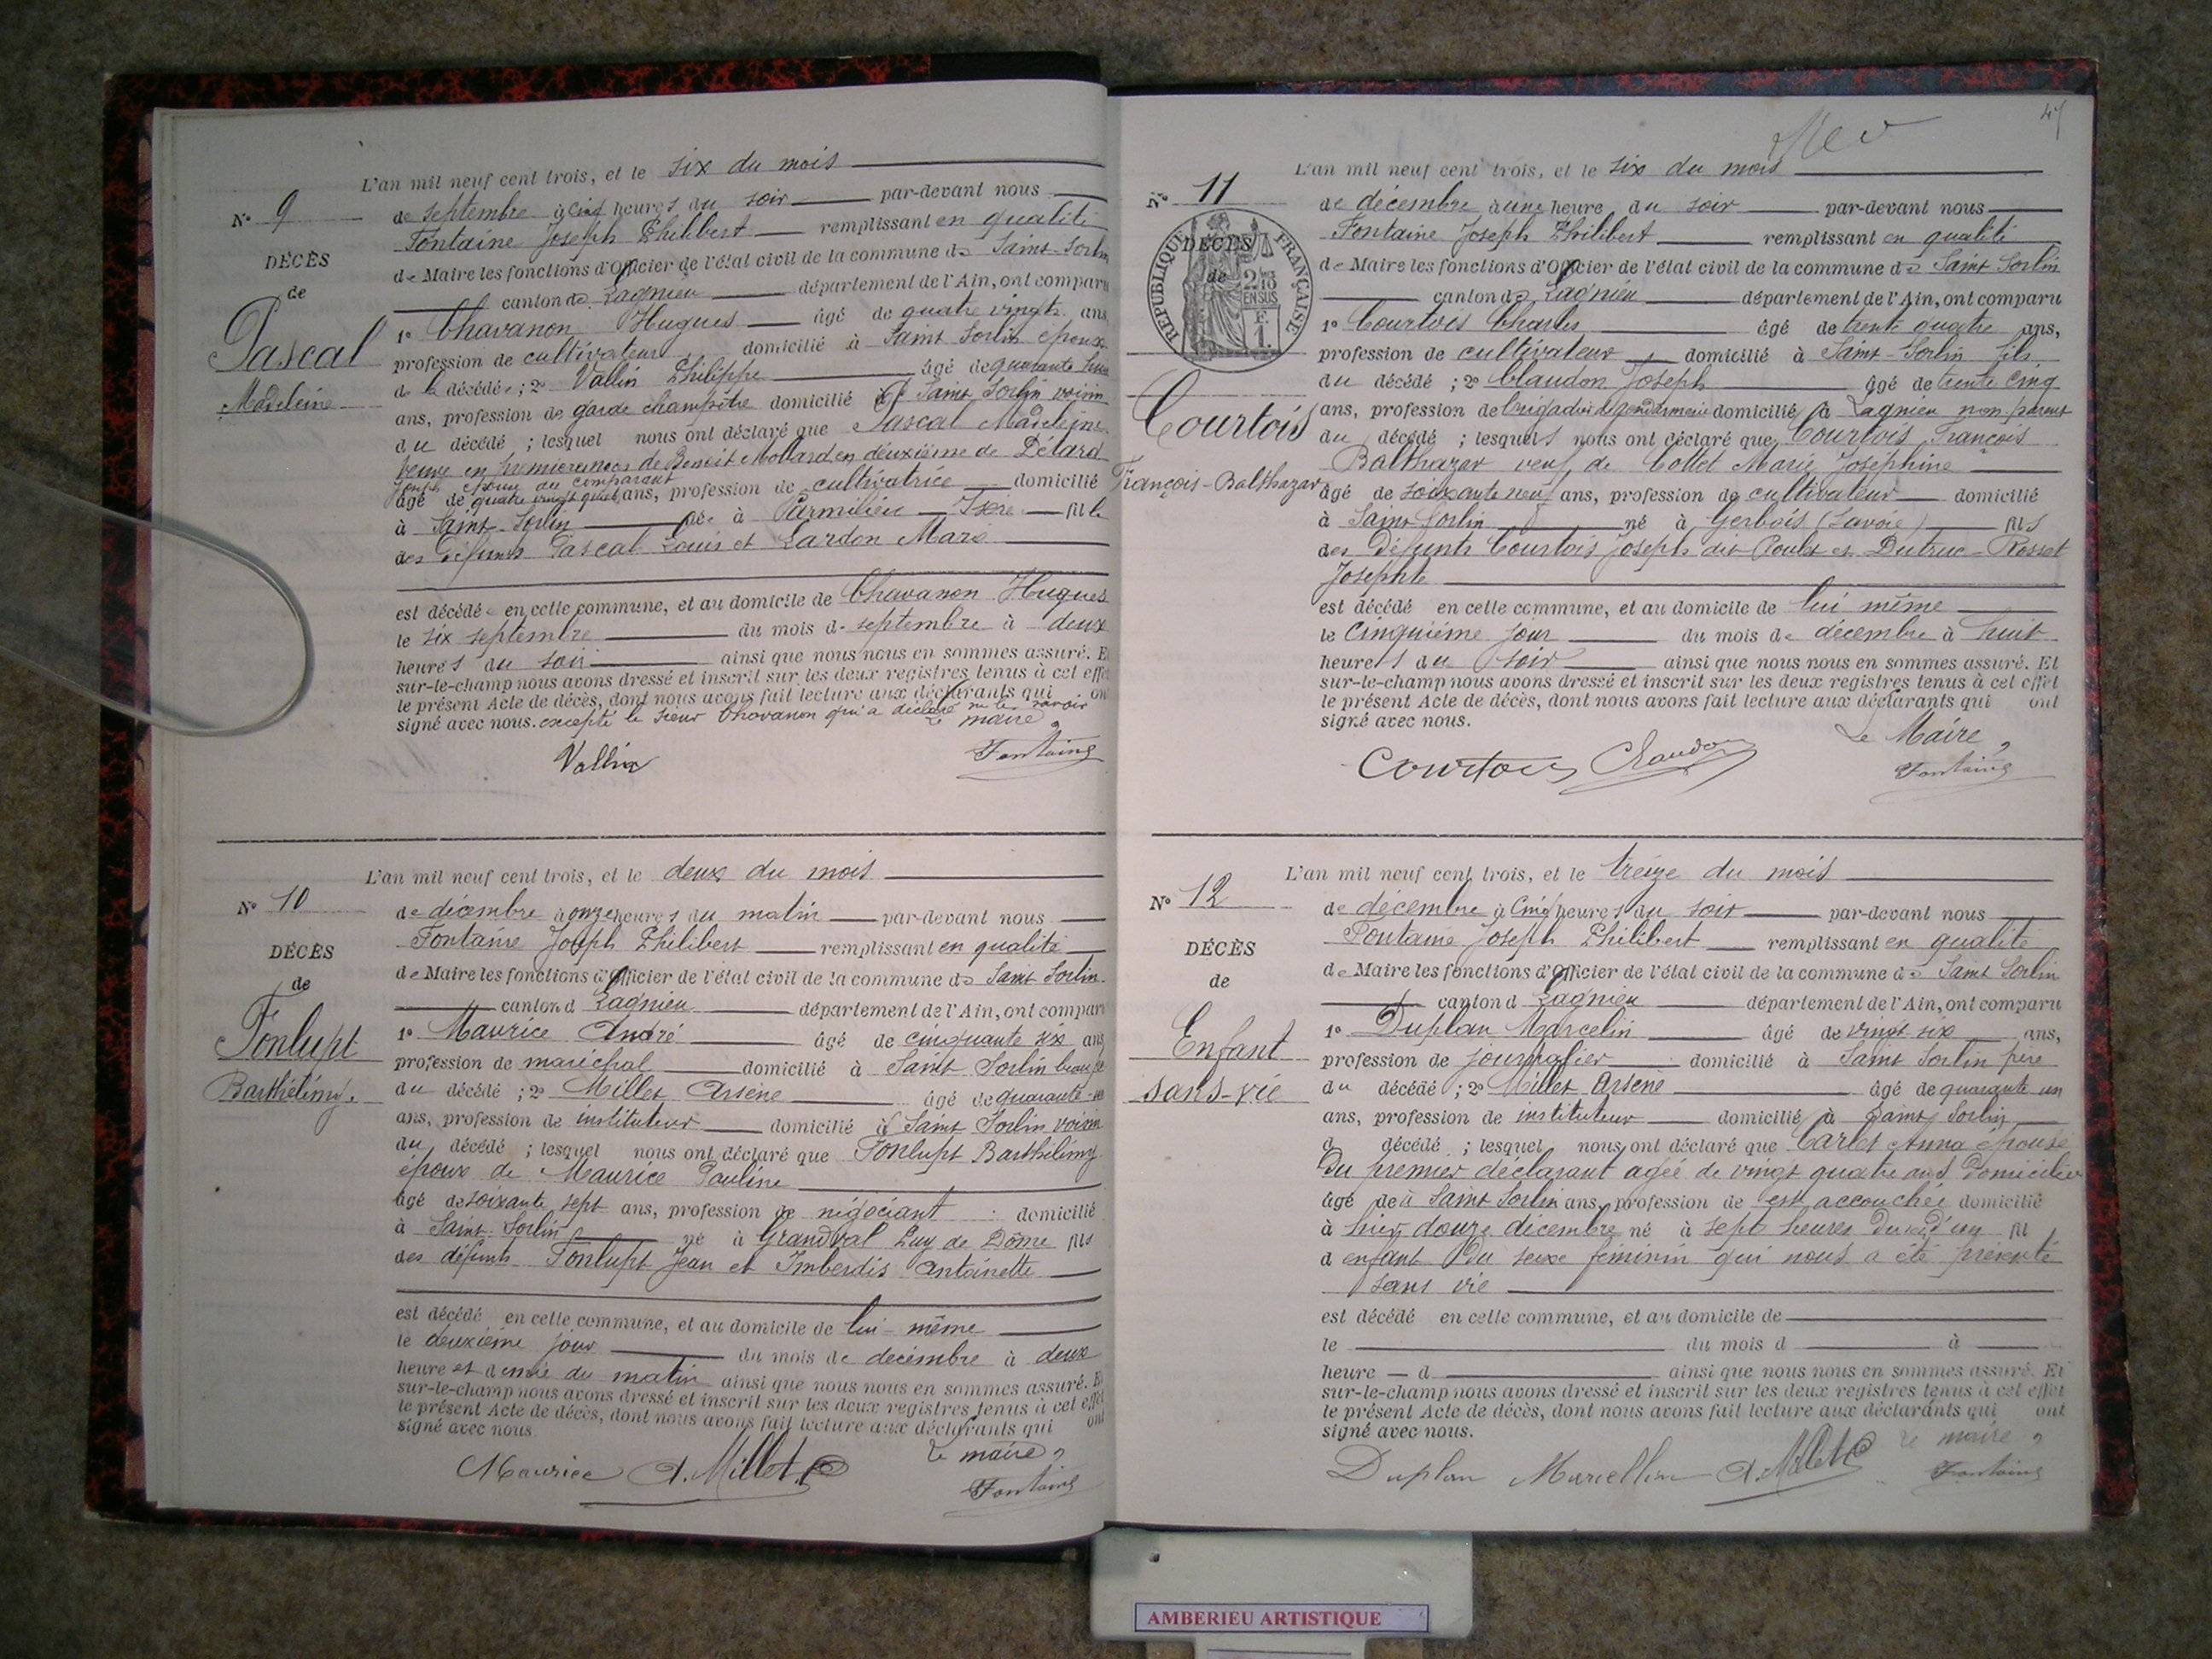 L'an mil neuf cent trois, et le six du mois
N° 9
de septembre à cinq heures du soir par-devant nous
Fontaine Joseph Philibert remplissant en qualité
DÉCÈS
de Maire les fonctions d'Officier de l'état civil de la commune de Saint-Sorlin
de
canton de Lagnieu département de l'Ain, ont comparu
Pascal
1° Chavanon Hugues âgé de quatre vingts ans,
profession de cultivateur domicilié à Saint Sorlin époux
Madeleine
de la décédée ; 2° Vallin Philippe âgé de quarante huit
ans, profession de garde champêtre domicilié à Saint Sorlin voisin
du décédé ; lesquel nous ont déclaré que Pascal Madeleine
veuve en premières noces de Benoit Mollard en deuxième de Pétard
Joseph épouse du comparant
âgé de quatre vingt ans, profession de cultivatrice domicilié
à Saint-Sorlin née à Parmilieu Isère fille
des défunts Pascal Louis et Lardon Marie
est décédée en cette commune, et au domicile de Chavanon Hugues
le six septembre du mois de septembre à deux
heures du soir ainsi que nous nous en sommes assuré. Et
sur-le-champ nous avons dressé et inscrit sur les deux registres tenus à cet effet
le présent Acte de décès, dont nous avons fait lecture aux déclarants qui ont
signé avec nous. excepté le sieur Chavanon qui a déclaré ne le savoir
Le maire,
Vallin Fontaine
L'an mil neuf cent trois, et le deux du mois
N° 10
de décembre à onze heures du matin par-devant nous
Fontaine Joseph Philibert remplissant en qualité
DÉCÈS
de Maire les fonctions d'Officier de l'état civil de la commune de Saint Sorlin
de
canton d Lagnieu département de l'Ain, ont comparu
Fonlupt
1° Maurice André âgé de cinquante six ans
profession de maréchal domicilié à Saint Sorlin
Barthélémy
du décédé ; 2° Millet Arsène âgé de quarante-un
ans, profession de instituteur domicilié à Saint Sorlin voisin
du décédé ; lesquel nous ont déclaré que Fonlupt Barthélémy
époux de Maurice Pauline
âgé de soixante sept ans, profession de négociant domicilié
à Saint-Sorlin né à Grandval Puy de Dôme fils
des défunts Fonlupt Jean et Imberdis Antoinette
est décédé en cette commune, et au domicile de lui-même
le deuxième jour du mois de décembre à deux
heure et demie du matin ainsi que nous nous en sommes assuré. Et
sur-le-champ nous avons dressé et inscrit sur les deux registres tenus à cet effet
le présent Acte de décès, dont nous avons fait lecture aux déclarants qui ont
signé avec nous.
Le maire,
Maurice A. Millet Fontaine
L'an mil neuf cent trois, et le six du mois
N° 11
de décembre à une heure du soir par-devant nous
Fontaine Joseph Philibert remplissant en qualité
RÉPUBLIQUE FRANÇAISE
DÉCÈS
de
EN SUS
de Maire les fonctions d'Officier de l'état civil de la commune de Saint Sorlin
canton de Lagnieu département de l'Ain, ont comparu
1° Courtois Charles âgé de trente quatre ans,
profession de cultivateur domicilié à Saint-Sorlin fils
du décédé ; 2° Claudon Joseph âgé de trente cinq
Courtois
ans, profession de brigadier de gendarmerie domicilié à Lagnieu non parent
du décédé ; lesquels nous ont déclaré que Courtois François
Balthazar veuf de Collet Marie Joséphine
François-Balthazar
âgé de soixante neuf ans, profession de cultivateur domicilié
à Saint Sorlin né à Gerbois (Savoie) fils
des défunts Courtois Joseph dit Roulet et Dutruc-Rosset
Josephte
est décédé en cette commune, et au domicile de lui même
le cinquième jour du mois de décembre à huit
heures du soir ainsi que nous nous en sommes assuré. Et
sur-le-champ nous avons dressé et inscrit sur les deux registres tenus à cet effet
le présent Acte de décès, dont nous avons fait lecture aux déclarants qui ont
signé avec nous.
Le Maire,
Courtois Claudon Fontaine
L'an mil neuf cent trois, et le treize du mois
N° 12
de décembre à cinq heures du soir par-devant nous
Fontaine Joseph Philibert remplissant en qualité
DÉCÈS
de Maire les fonctions d'Officier de l'état civil de la commune de Saint Sorlin
de
canton d Lagnieu département de l'Ain, ont comparu
Enfant
1° Duplan Marcelin âgé de vingt six ans,
profession de journalier domicilié à Saint Sorlin père
sans-vie
du décédé ; 2° Millet Arsène âgé de quarante un
ans, profession de instituteur domicilié à Saint Sorlin
d décédé ; lesquel nous ont déclaré que Carlet Anna épouse
du premier déclarant agée de vingt quatre ans domiciliée
âgé de à Saint Sorlin ans, profession de est accouchée domicilié
à hier douze décembre né à sept heures du soir d'un fil
d enfant du sexe féminin qui nous a été présenté
sans vie
est décédé en cette commune, et au domicile de
le du mois d à
heure d ainsi que nous nous en sommes assuré. Et
sur-le-champ nous avons dressé et inscrit sur les deux registres tenus à cet effet
le présent Acte de décès, dont nous avons fait lecture aux déclarants qui ont
signé avec nous.
Le maire,
Duplan Marcellin A. Millet Fontaine
AMBERIEU ARTISTIQUE